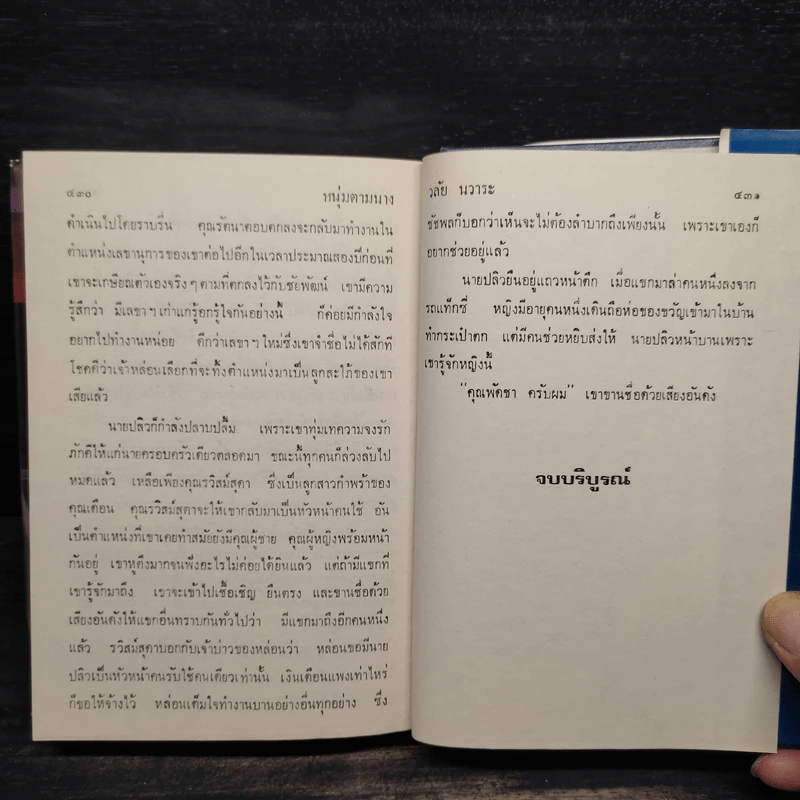 ๔๓๐
หนุ่มตามนาง
ดำเนินไปโดยราบรื่น คุณรัตนาตอบตกลงจะกลับมาทำงานใน
ตำแหน่งเลขานุการของเขาต่อไปอีกในเวลาประมาณสองปีก่อนที่
เขาจะเกษียณตัวเองจริง ๆ ตามที่ตกลงไว้กับชัยพัฒน์ เขามีความ
รู้สึกว่า มีเลขา ฯ เก่าแก่รู้อกรู้ใจกันอย่างนี้ ก็ค่อยมีกำลังใจ
อยากไปทำงานหน่อย ดีกว่าเลขา ฯ ใหม่ซึ่งเขาจำชื่อไม่ได้สักที
โชคดีว่าเจ้าหล่อนเลือกที่จะทิ้งตำแหน่งมาเป็นลูกสะใภ้ของเขา
เสียแล้ว
นายปลิวก็กำลังปลาบปลื้ม เพราะเขาทุ่มเทความจงรัก
ภักดีให้แก่นายครอบครัวเดียวตลอดมา ขณะนี้ทุกคนก็ล่วงลับไป
หมดแล้ว เหลือเพียงคุณรวิสม์สุดา ซึ่งเป็นลูกสาวกำพร้าของ
คุณเดือน คุณรวิสม์สุดาจะให้เขากลับมาเป็นหัวหน้าคนใช้ อัน
เป็นตำแหน่งที่เขาเคยทำสมัยยังมีคุณผู้ชาย คุณผู้หญิงพร้อมหน้า
กันอยู่ เขาหูตึงมากจนฟังอะไรไม่ค่อยได้ยินแล้ว แต่ถ้ามีแขกที่
เขารู้จักมาถึง เขาจะเข้าไปเชื้อเชิญ ยืนตรง และขานชื่อด้วย
เสียงอันดังให้แขกอื่นทราบกันทั่วไปว่า มีแขกมาถึงอีกคนหนึ่ง
แล้ว รวิสม์สุดาบอกกับเจ้าบ่าวของหล่อนว่า หล่อนขอมีนาย
ปลิวเป็นหัวหน้าคนรับใช้คนเดียวเท่านั้น เงินเดือนแพงเท่าไหร่
ก็ขอให้จ้างไว้ หล่อนเต็มใจทำงานบ้านอย่างอื่นทุกอย่าง ซึ่ง
วลัย นวาระ
๔๓๑
ชัชพลก็บอกว่าเห็นจะไม่ต้องลำบากถึงเพียงนั้น เพราะเขาเองก็
อยากช่วยอยู่แล้ว
นายปลิวยืนอยู่แถวหน้าตึก เมื่อแขกมาล่าคนหนึ่งลงจาก
รถแท็กซี่ หญิงมีอายุคนหนึ่งเดินถือห่อของขวัญเข้ามาในบ้าน
ทำกระเป๋าตก แต่มีคนช่วยหยิบส่งให้ นายปลิวหน้าบานเพราะ
เขารู้จักหญิงนี้
"คุณพัดชา ครับผม" เขาขานชื่อด้วยเสียงอันดัง
จบบริบูรณ์